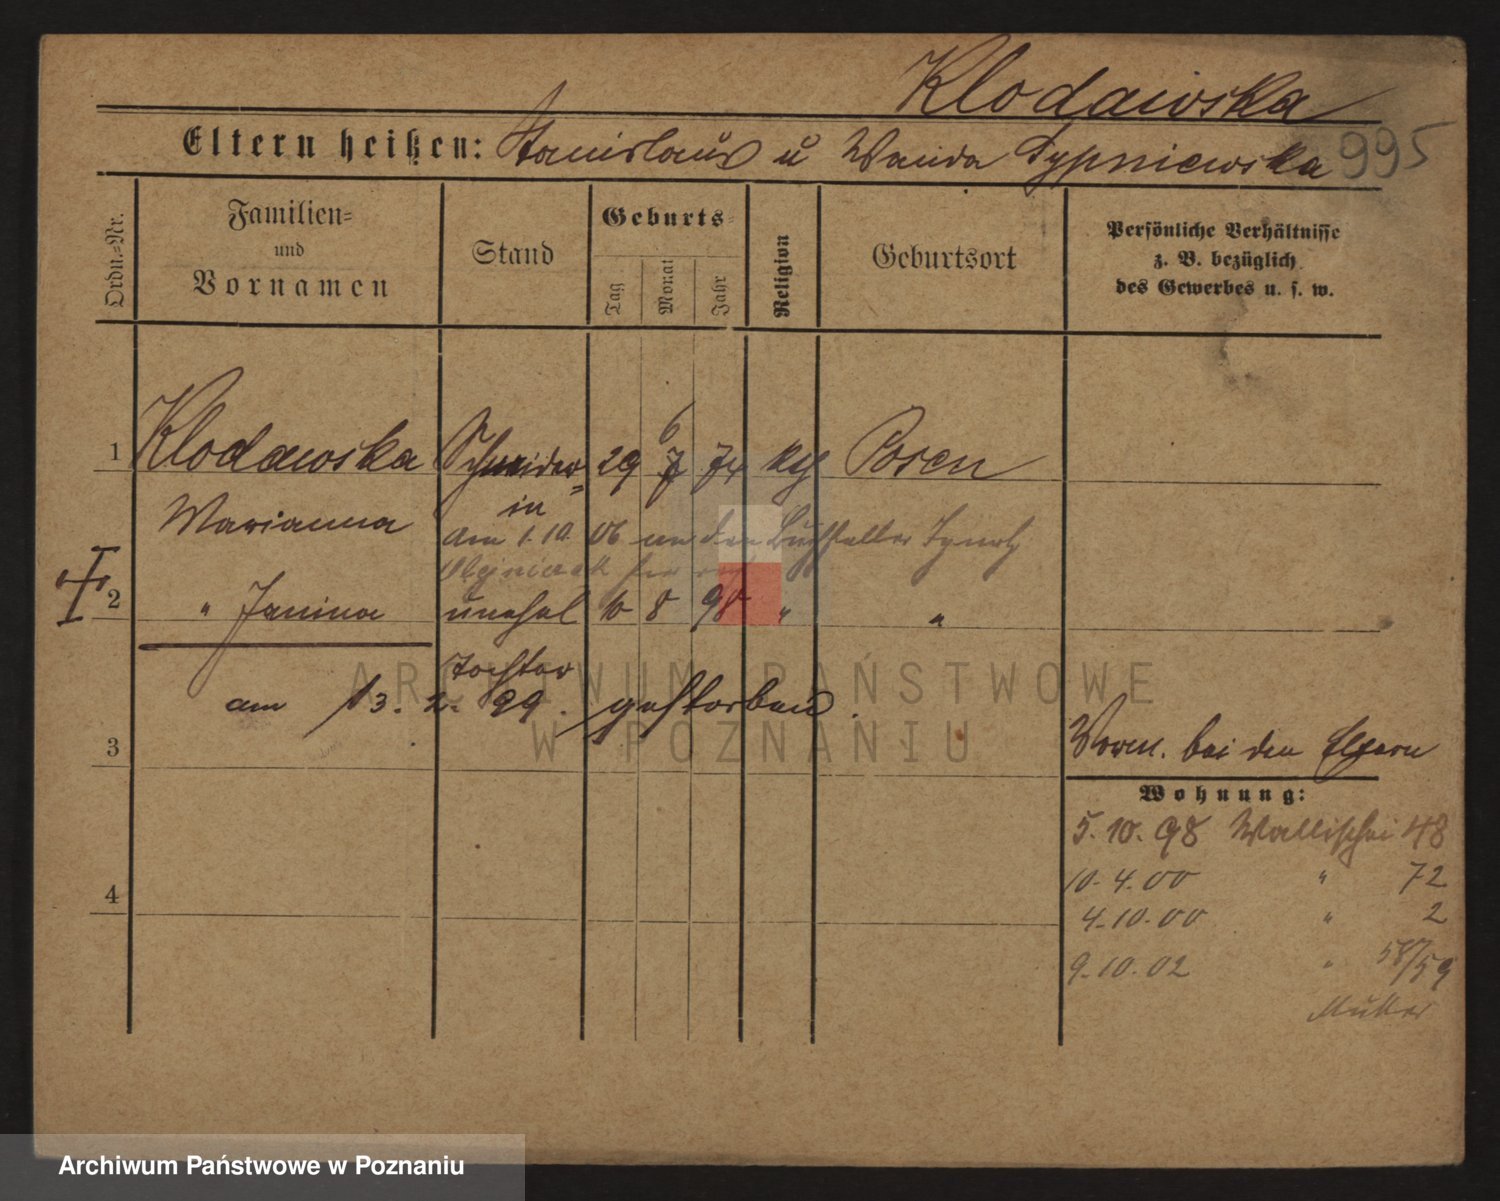 Klodawska
Eltern heißen: Stanislaus u Wanda Sypniewska 995
Ordn.-Nr.
Familien-
und
Vornamen
Stand
Geburts-
Tag
Monat
Jahr
Religion
Geburtsort
Persönliche Verhältnisse
z. B. bezüglich
des Gewerbes u. s. w.
6
1 Klodawska Schneider= 29 7 74 kth Posen
in
Marianna
am 1.10. 06 an den Buchhalter Ignatz
Olejniczak
2 " Janina unehel 10 8 98 " "
Tochter
am 13. 2. 99. gestorben.
3
Vorm. bei den Eltern
Wohnung:
5. 10. 98 Wallischei 48
10. 4. 00 " 72
4
4. 10. 00 " 2
9. 10. 02 " 58/59
Mutter
ARCHIWUM PAŃSTWOWE
W POZNANIU
Archiwum Państwowe w Poznaniu